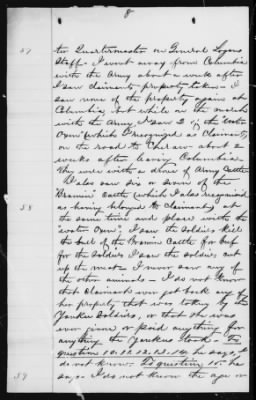 8
57
ter Quartermaster on General Logans
Staff. I went away from Columbia
with the Army about a week after
I saw claimants property taken. I
saw none of the property again at
Columbia, but while on the march
with the Army I saw 2 of the "water
Oxen" (which I recognized as Claimants)
on the road to Cheraw about 2
weeks after leaving Columbia.
They were with a drove of Army Cattle
I also saw six or seven of the
58
"Bramin" Cattle (which I also recognized
as having belonged to Claimant) at
the same time and place with the
"water Oxen". I saw the soldiers kill
the bull of the Bramin Cattle for beef
for the soldiers I saw the soldiers cut
up the meat. I never saw any of
the other animals. I do not know
that Claimant ever got back any of
her property that was taken by the
Yankee Soldiers, or that she was
ever given or paid anything for
anything the Yankees took. To
question 10. 11. 12. 13. 14. he says, I
do not know. To question 15. he
59
says I do not know the age or